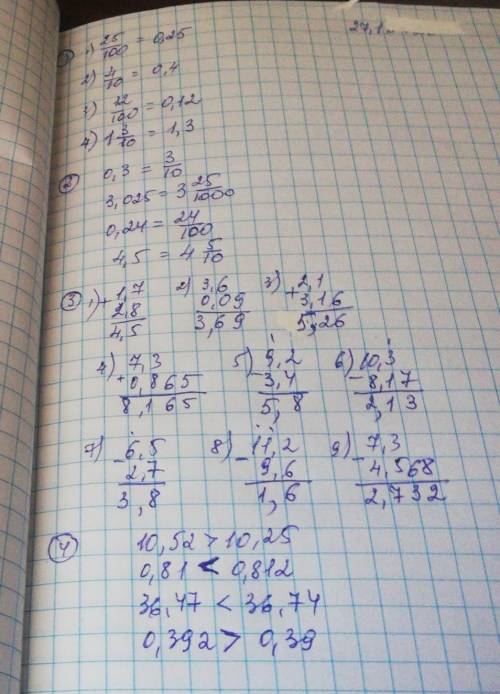 27,1
① 1) 25/100 = 0,25
2) 4/10 = 0,4
3) 12/100 = 0,12
4) 1 3/10 = 1,3
② 0,3 = 3/10
3,025 = 3 25/1000
0,24 = 24/100
4,5 = 4 5/10
③ 1) + 1,7 2) 3,6 3) + 2,1
2,8 0,09 3,16
4,5 3,69 5,26
4) + 7,3 5) - 9,2 6) - 10,3
0,865 3,4 8,17
8,165 5,8 2,13
7) - 6,5 8) - 11,2 9) - 7,3
2,7 9,6 4,568
3,8 1,6 2,732
④ 10,52 > 10,25
0,81 < 0,812
36,47 < 36,74
0,392 > 0,39